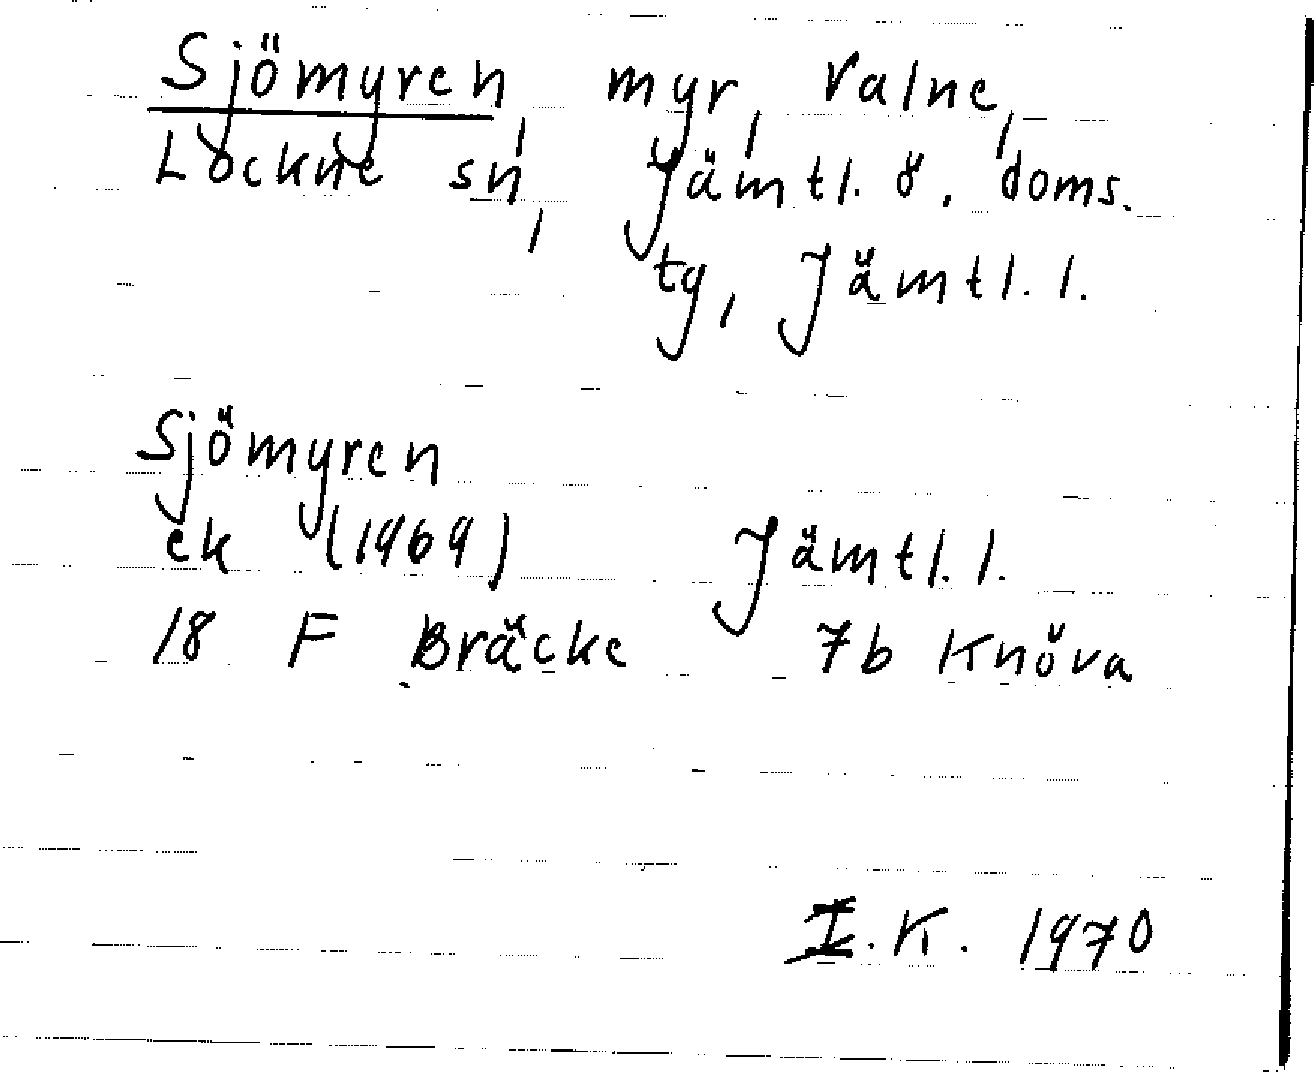 Sjömyren, myr, Valne,
Lockne sn, Jämtl. ö. doms.
tg, Jämtl. l.
Sjömyren
ek (1969) Jämtl. l.
18 F Bräcke 7b Knöva
I.K. 1970